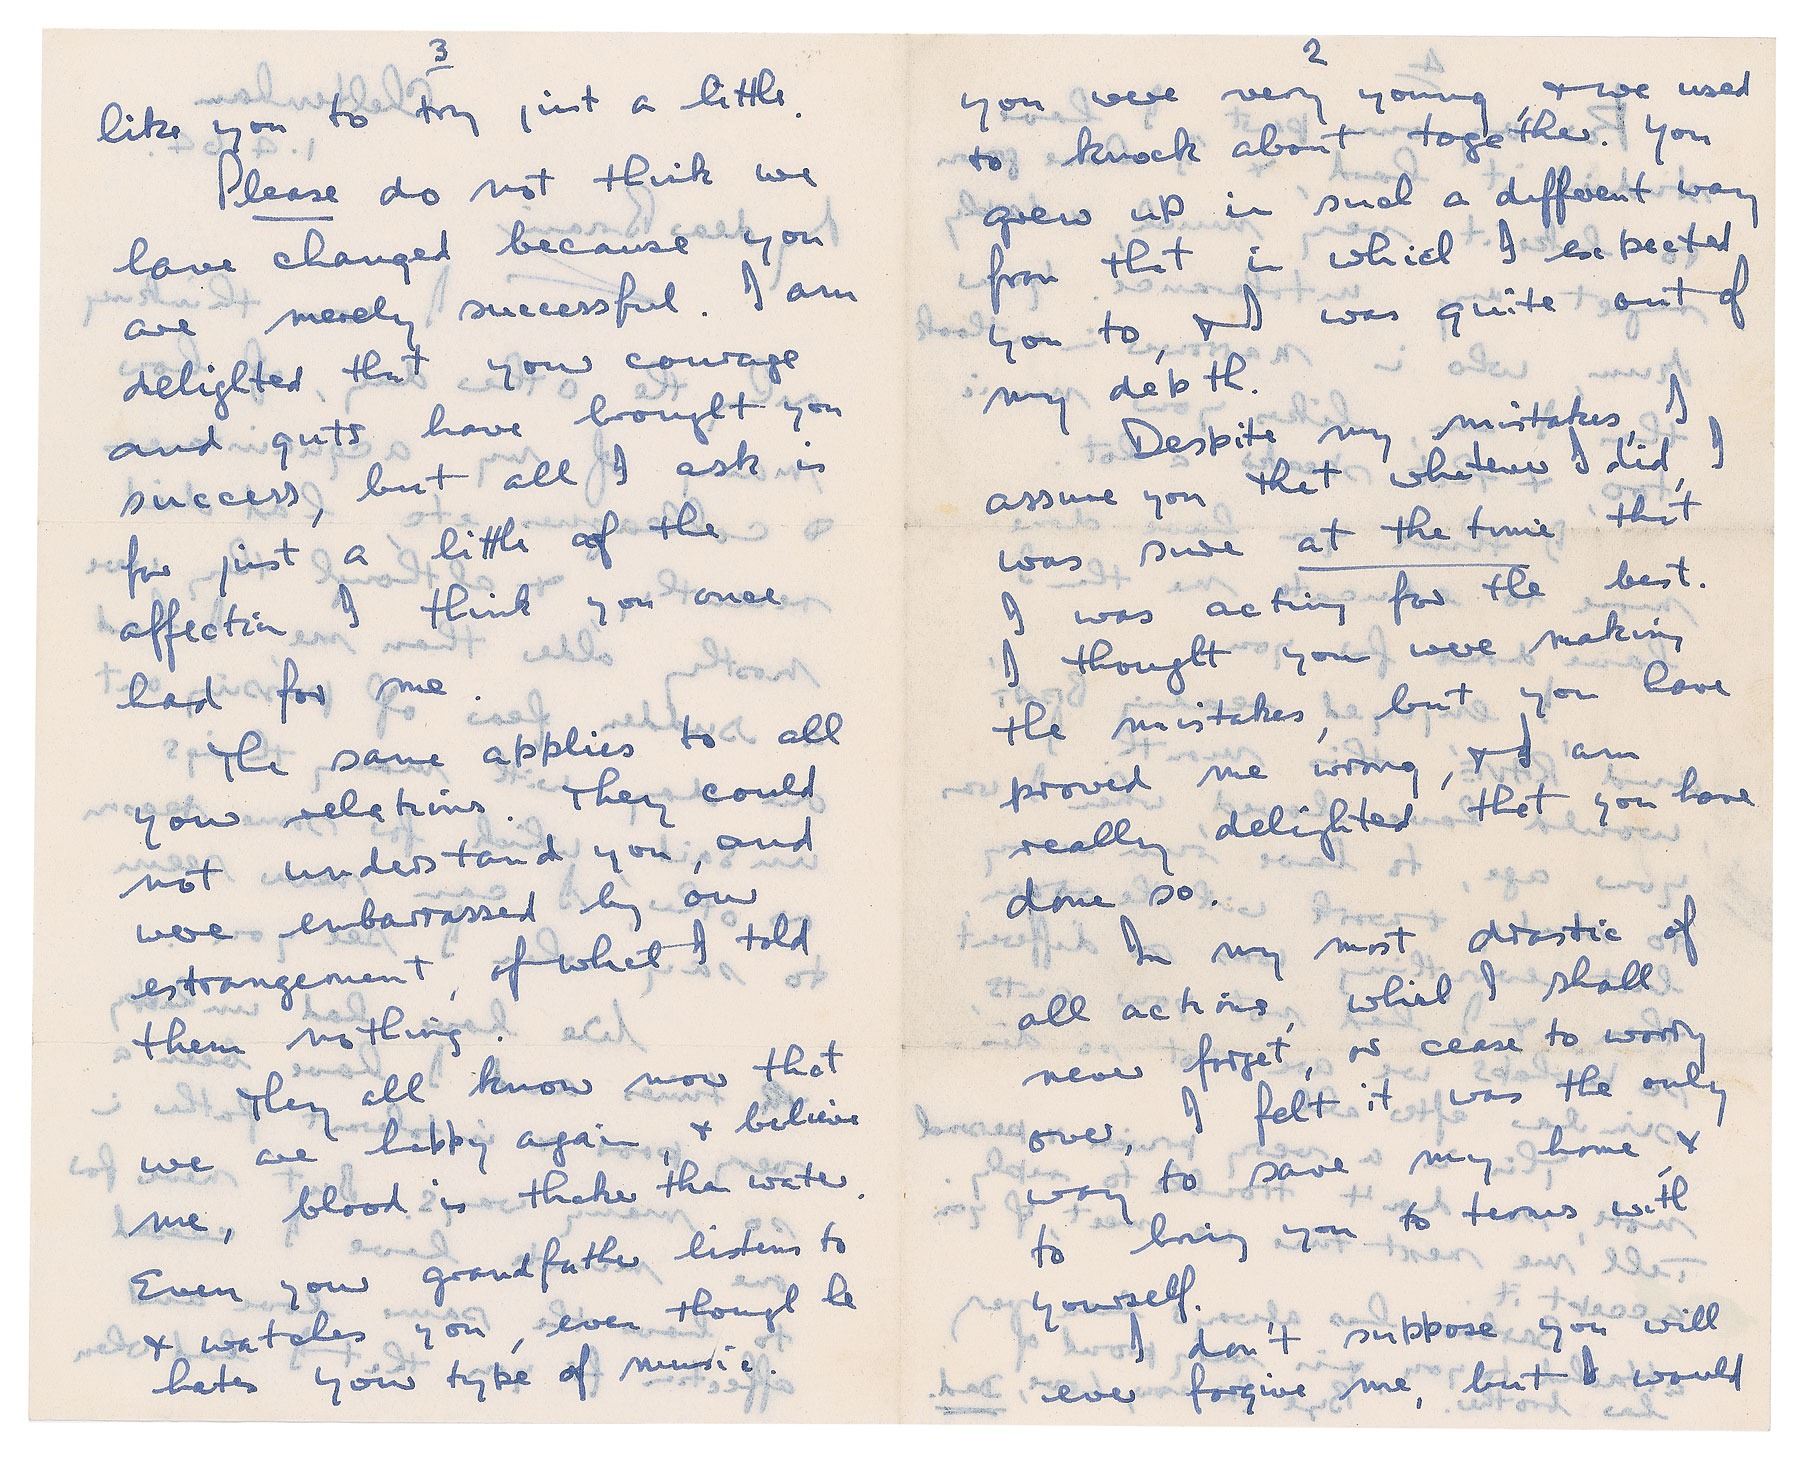 2
you were very young, & we used
to knock about together. You
grew up in such a different way
from that in which I expected
you to, & I was quite out of
my depth.
Despite my mistakes, I
assure you that whatever I did, I
was sure at the time that
I was acting for the best.
I thought you were making
the mistakes, but you have
proved me wrong, & I am
really delighted that you have
done so.
In my most drastic of
all actions, which I shall
never forget, or cease to worry
over, I felt it was the only
way to save my home, &
to bring you to terms with
yourself.
I don't suppose you will
ever forgive me, but I would
3
like you to try just a little.
Please do not think we
have changed because you
are merely successful. I am
delighted that your courage
and guts have brought you
success, but all I ask is
for just a little of the
affection I think you once
had for me.
The same applies to all
your relations. They could
not understand you, and
were embarrassed by our
estrangement, of what I told
them nothing.
They all know now that
we are happy again, & believe
me, blood is thicker than water.
Even your grandfather listens to
& watches you, even though he
hates your type of music.